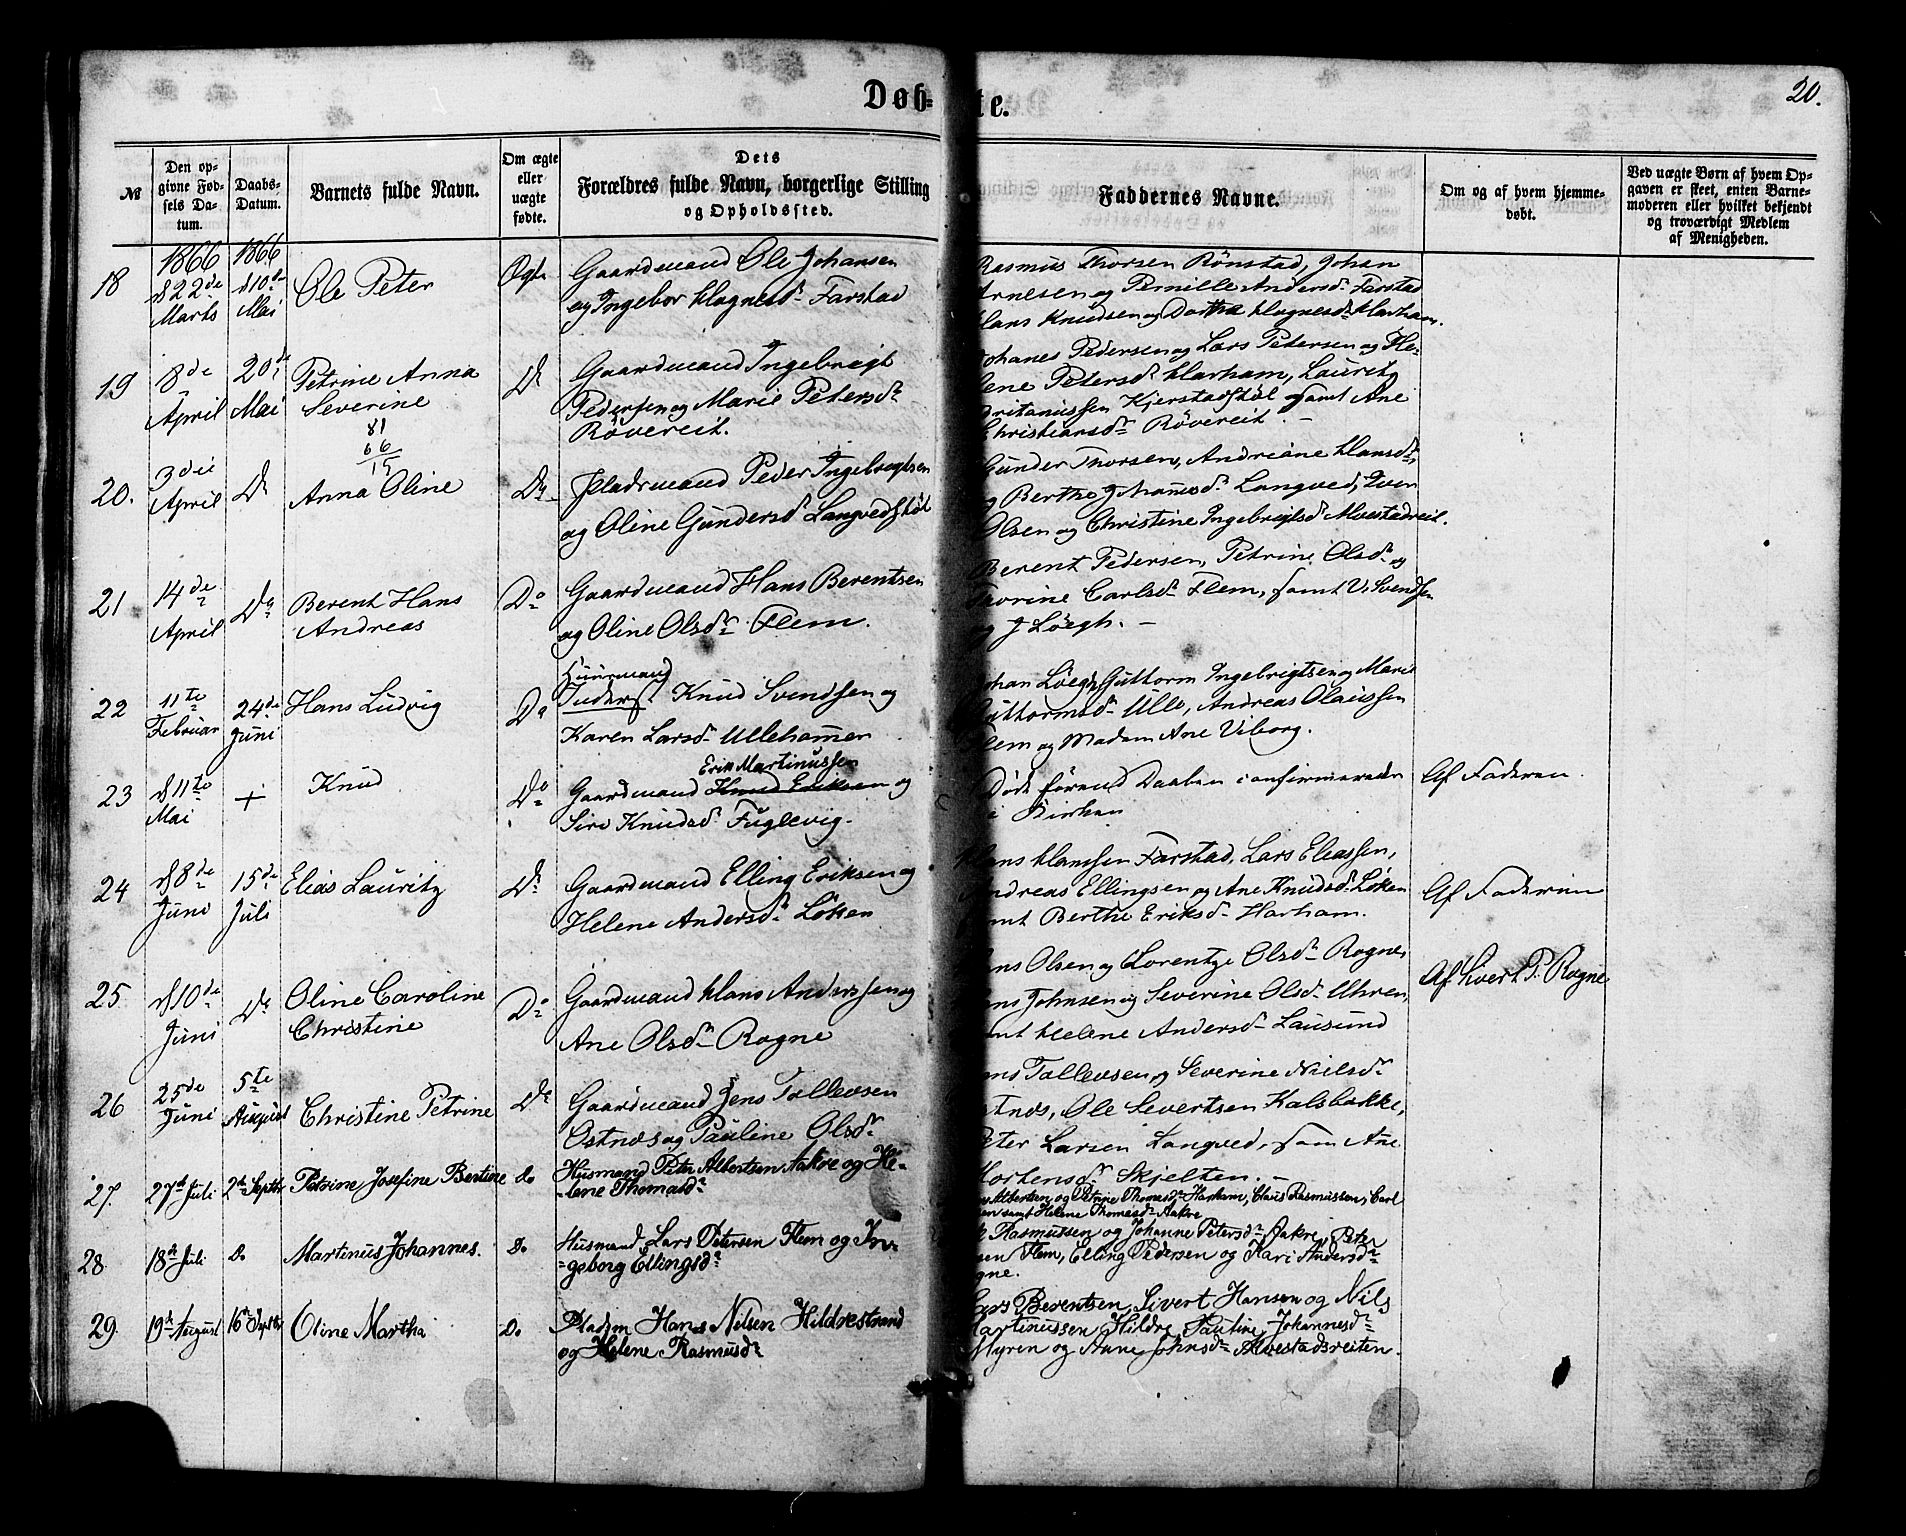 Døb-
te.
20.
№
Den op-
givne Fød-
sels Da-
tum.
Daabs-
Datum.
Barnets fulde Navn.
Om ægte
eller
uægte
fødte.
Dets
Forældres fulde Navn, borgerlige Stilling
og Opholdssted.
Faddernes Navne.
Om og af hvem hjemme-
døbt.
Ved uægte Børn af hvem Op-
gaven er skeet, enten Barne-
moderen eller hvilket bekjendt
og troværdigt Medlem
af Menigheden.
18
1866
d 22de
Marts
1866
d 10de
Mai
Ole Peter
Ægte
Gaardmand Ole Johansen
og Ingebor Hagnesd. Farstad
Rasmus Thorsen Rönstad, Johan
Arnesen og Pernille Andersd. Farstad
Hans Knudsen og Dorthe Hagnesd. Harham.
19
8de
April
20de
Mai
Petrine Anna
Severine
D.
Gaardmand Ingebrigt
Pedersen og Marie Petersd.
Røvereit.
Johanes Pedersen og Lars Petersen og He-
lene Petersd. Harham, Lauritz
Kjerstadstøl samt Ane
Christiansd. Røvereit. –
81
66
15
20.
3die
April
Do
Anna Oline
Do
Pladsmand Peder Ingebrigtsen
og Oline Gundersd. Langvedstøl
Gunder Thorsen, Andriane Hansd.
og Berthe Johannesd. Langved, Iver
Olsen og Christine Ingebrigtsd. Alvestadreit.
21
14de
April
Do
Berent Hans
Andreas
Do
Gaardmand Hans Berentsen
og Oline Olsd. Flem.
Berent Pedersen, Petrine Olsd. og
Thorine Carlsd. Flem, samt V. Svendsen
og J Löegh. –
22
11te
Februar
24de
Juni
Hans Ludvig
Do
Huusmand
Inderst Knud Svendsen og
Karen Larsd. Ullehamer
Johan Löegh, Guttorm Ingebrigtsen og Marie
Guttormsd. Ulle, Andreas Olaussen
Flem og Madam Ane Viborg.
23
d 11te
Mai
+
Knud
Do
Erik Martinussen
Gaardmand Knud Eriksen og
Siri Knudsd. Fuglevig.
Døde førend Daaben confirmeredes
i Kirken
Af Faderen.
24
d 8de
Juni
15de
Juli
Elias Lauritz
Do
Gaardmand Elling Eriksen og
Helene Andersd. Løken
Hans Hansen Farstad, Lars Eliassen,
Andreas Ellingsen og Ane Knudsd. Løken
samt Berthe Eriksd. Harham.
Af Faderen
25
d 10de
Juni
Do
Oline Caroline
Christine
Do
Gaardmand Hans Anderssen og
Ane Olsd. Rogne
Hans Olsen og Lorentze Olsd. Rogne,
Jens Johnsen og Severine Olsd. Uhren,
samt Helene Andersd. Lausund
Af Sivert P. Rogne
26
25de
Juni
5te
August
Christine Petrine
Do
Gaardmand Jens Tollevsen
Østnes og Pauline Olsd.
Jens Tollevsen og Severine Nielsd.
Østnes, Ole Severtsen Kalsbakke,
Peter Larsen Langved, sam Ane
Mortensd. Skjelten. –
27.
27de Juli
2de Septbr
Petrine Josefine Bertine
do
Husmand Peter Albertsen Aakre og He-
-lene Thomasd.
Albertsen og Petrine Thomasd. Harham, Claus Rasmussen, Carl
samt Helene Thomasd. Aakre
28.
18de Juli
Do
Martinus Johannes.
Do
Husmand Lars Petersen Flem og In-
-geborg Ellingsd.
Rasmussen og Johanne Petersd. Aakre, Peter
sen Flem, Elling Pedersen og Kari Andersd.
Rogne.
29.
19de August
16de Septbr
Oline Martha
Do
Pladsm Hans Nilsen Hildrestrand
og Helene Rasmusd.
Lars Berentsen, Sivert Hansen og Nils
Martinussen Hildre, Pauline Johannesd.
Myren og Anne Johnsd. Alvestadsreiten.